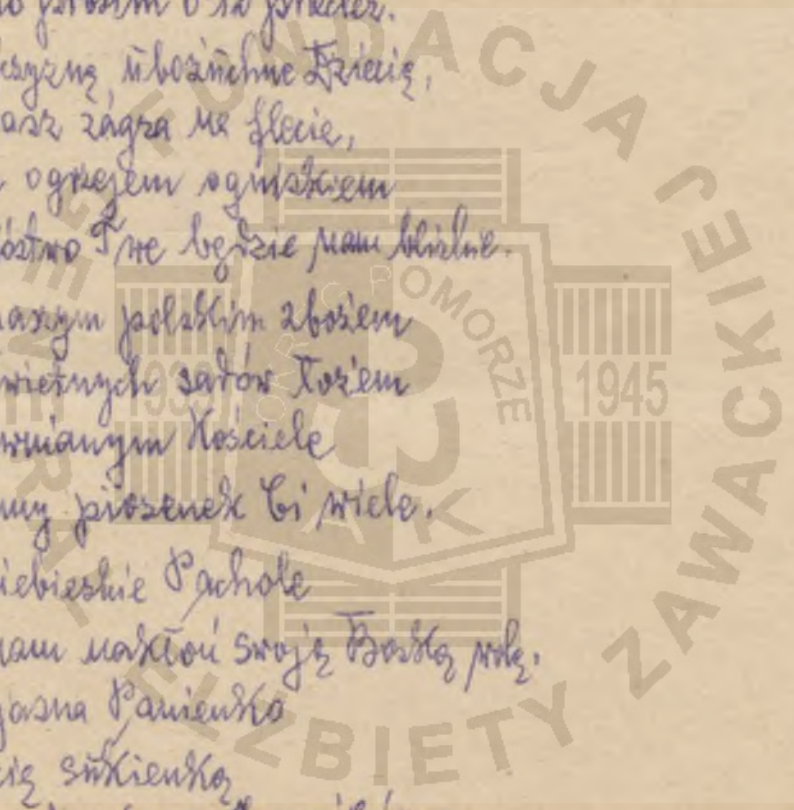 prosim o to przecież.
ksyzną, ubożuchne Dziecię,
asz zagra na flecie,
ogrzejem ogniskiem
óstwo Twe będzie nam bliskie.
naszym polskim zbożem
wietnych sadów łożem
wnianym Kościele
my piosenek Ci wiele.
iebieskie Pacholę
nam nakłoń swoją Boską wolę.
jasna Panienko
cię sukienką
FUNDACJA
GENERAŁ
ELŻBIETY ZAWACKIEJ
POMORZE
1939
1945
AK